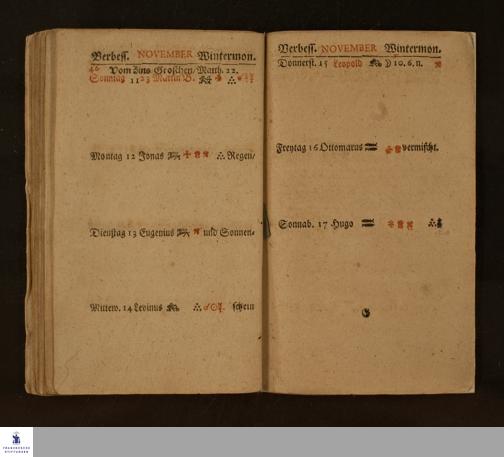 Verbeſſ. NOVEMBER Wintermon.
46 Vom Zins Groſchen/ Matth. 22.
Sonntag 11 23 Martin B.
Montag 12 Jonas Regen/
Dienſtag 13 Eugenius und Sonnen-
Mittew. 14 Levinus ſchein
Verbeſſ. NOVEMBER Wintermon.
Donnerſt. 15 Leopold ☽ 10. 6. n.
Freytag 16 Ottomarus vermiſcht.
Sonnab. 17 Hugo
FRANCKESCHE
STIFTUNGEN